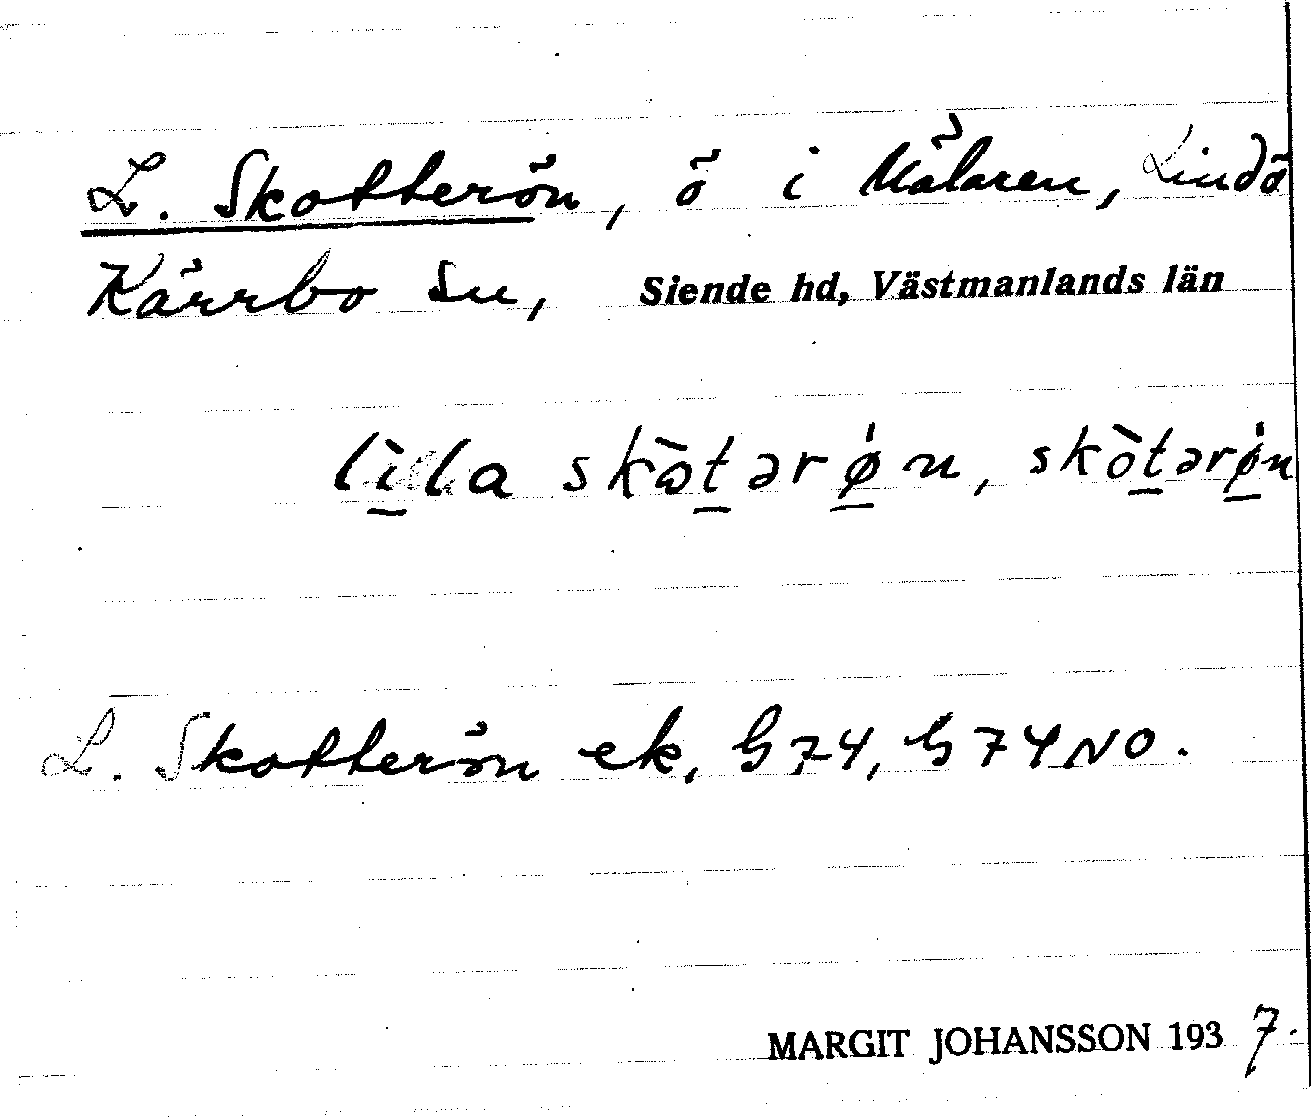 L. Skotterön, ö i Mälaren, Lindö
Kärrbo sn, Siende hd, Västmanlands län
lìlla skɷ̀tərø̍n, skòtərø̍n
L. Skotterön ek, G74, G74NO.
MARGIT JOHANSSON 1937.